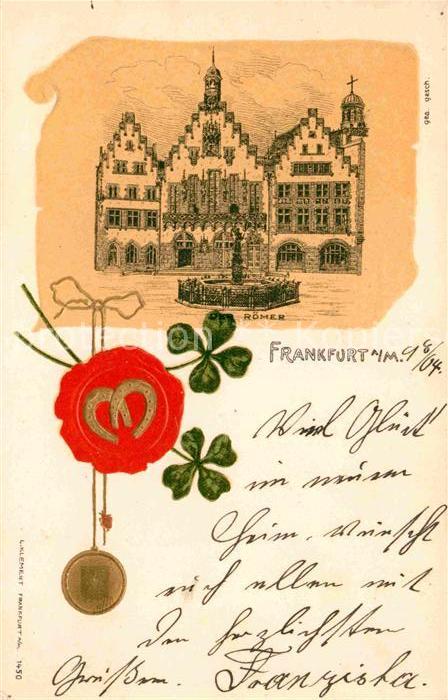 ges. gesch.
DER RÖMER
FRANKFURT a/M. 9/8/04.
Viel Glück
im neuen
Heim, wünscht
euch allen mit
den herzlichsten
Grüßen. Franziska.
L. KLEMENT FRANKFURT a/M. 1450